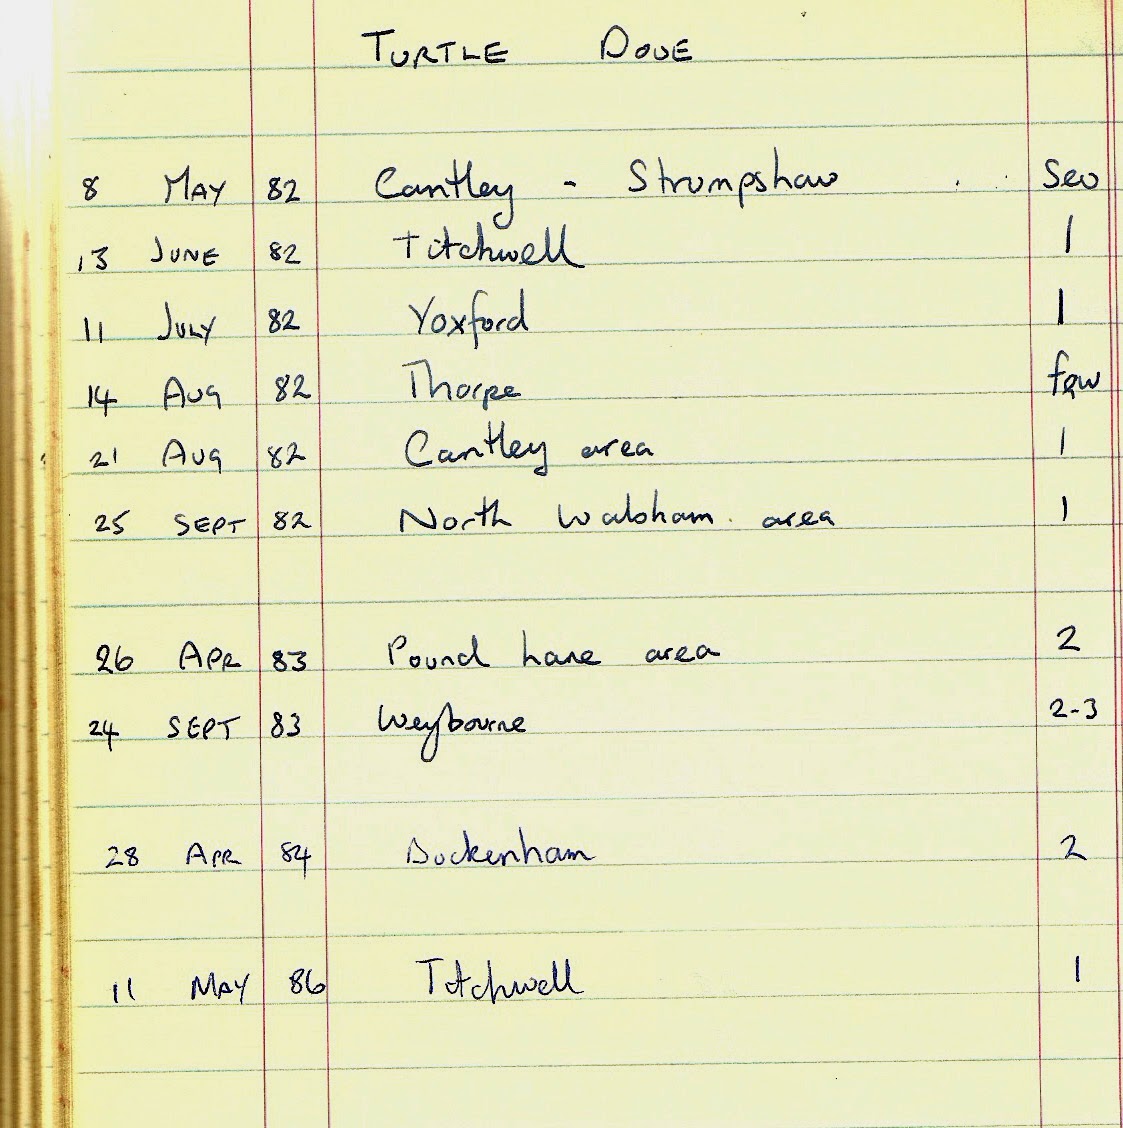 TURTLE DOVE
8 MAY 82 Cantley - Strumpshaw Sev
13 JUNE 82 Titchwell 1
11 JULY 82 Yoxford 1
14 AUG 82 Thorpe few
21 AUG 82 Cantley area 1
25 SEPT 82 North Walsham area 1
26 APR 83 Pound Lane area 2
24 SEPT 83 Weybourne 2-3
28 APR 84 Buckenham 2
11 MAY 86 Titchwell 1